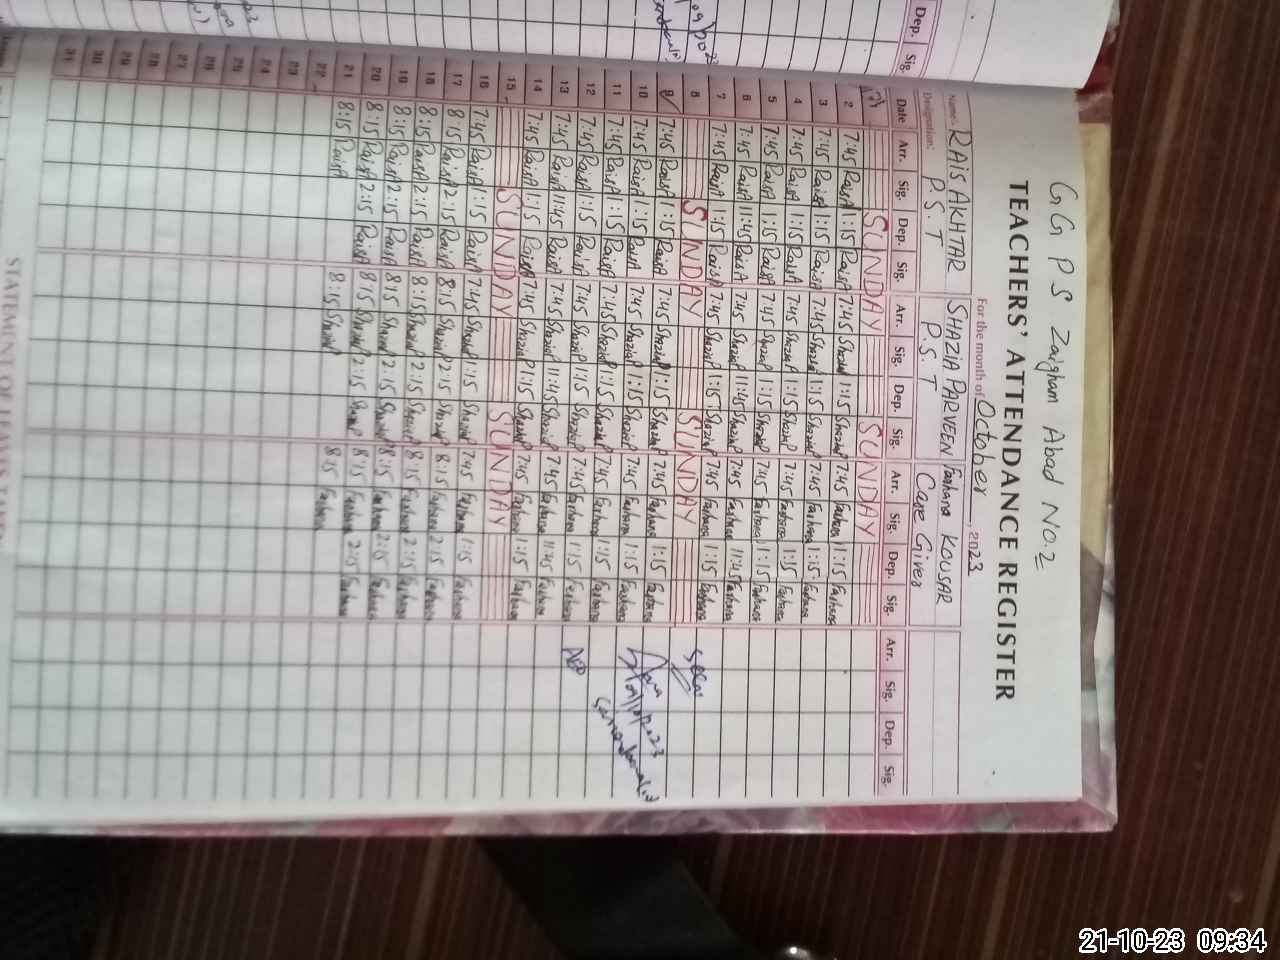 G G P S Zaigham Abad No.2
TEACHERS' ATTENDANCE REGISTER
For the month of October, 2023
Name: RAIS AKHTAR SHAZIA PARVEEN Farhana KOUSAR
Designation: P.S.T P.S.T Care Giver
Date Arr. Sig. Dep. Sig. Arr. Sig. Dep. Sig. Arr. Sig. Dep. Sig. Arr. Sig. Dep. Sig.
SUNDAY SUNDAY
2 7:45 RaisA 1:15 RaisA 7:45 ShaziaP 1:15 ShaziaP 7:45 Farhana 1:15 Farhana
3 7:45 RaisA 1:15 RaisA 7:45 ShaziaP 1:15 ShaziaP 7:45 Farhana 1:15 Farhana
4 7:45 RaisA 1:15 RaisA 7:45 ShaziaP 1:15 ShaziaP 7:45 Farhana 1:15 Farhana
5 7:45 RaisA 1:15 RaisA 7:45 ShaziaP 1:15 ShaziaP 7:45 Farhana 1:15 Farhana
6 7:45 RaisA 11:45 RaisA 7:45 ShaziaP 11:45 ShaziaP 7:45 Farhana 11:45 Farhana
7 7:45 RaisA 1:15 RaisA 7:45 ShaziaP 1:15 ShaziaP 7:45 Farhana 1:15 Farhana
8 SUNDAY SUNDAY Seen
9 7:45 RaisA 1:15 RaisA 7:45 ShaziaP 1:15 ShaziaP 7:45 Farhana 1:15 Farhana
10 7:45 RaisA 1:15 RaisA 7:45 ShaziaP 1:15 ShaziaP 7:45 Farhana 1:15 Farhana
11 7:45 RaisA 1:15 RaisA 7:45 ShaziaP 1:15 ShaziaP 7:45 Farhana 1:15 Farhana
12 7:45 RaisA 1:15 RaisA 7:45 ShaziaP 1:15 ShaziaP 7:45 Farhana 1:15 Farhana
13 7:45 RaisA 11:45 RaisA 7:45 ShaziaP 11:45 ShaziaP 7:45 Farhana 11:45 Farhana
14 7:45 RaisA 1:15 RaisA 7:45 ShaziaP 1:15 ShaziaP 7:45 Farhana 1:15 Farhana
15 SUNDAY SUNDAY
16 7:45 RaisA 1:15 RaisA 7:45 ShaziaP 1:15 ShaziaP 7:45 Farhana 1:15 Farhana
17 8:15 RaisA 2:15 RaisA 8:15 ShaziaP 2:15 ShaziaP 8:15 Farhana 2:15 Farhana
18 8:15 RaisA 2:15 RaisA 8:15 ShaziaP 2:15 ShaziaP 8:15 Farhana 2:15 Farhana
19 8:15 RaisA 2:15 RaisA 8:15 ShaziaP 2:15 ShaziaP 8:15 Farhana 2:15 Farhana
20 8:15 RaisA 2:15 RaisA 8:15 ShaziaP 2:15 ShaziaP 8:15 Farhana 2:15 Farhana
21 8:15 RaisA 8:15 ShaziaP 8:15 Farhana
22
23
24
25
26
27
28
29
30
31
STATEMENT OF LEAVES TAKEN
Dep. Sig.
21-10-23 09:34